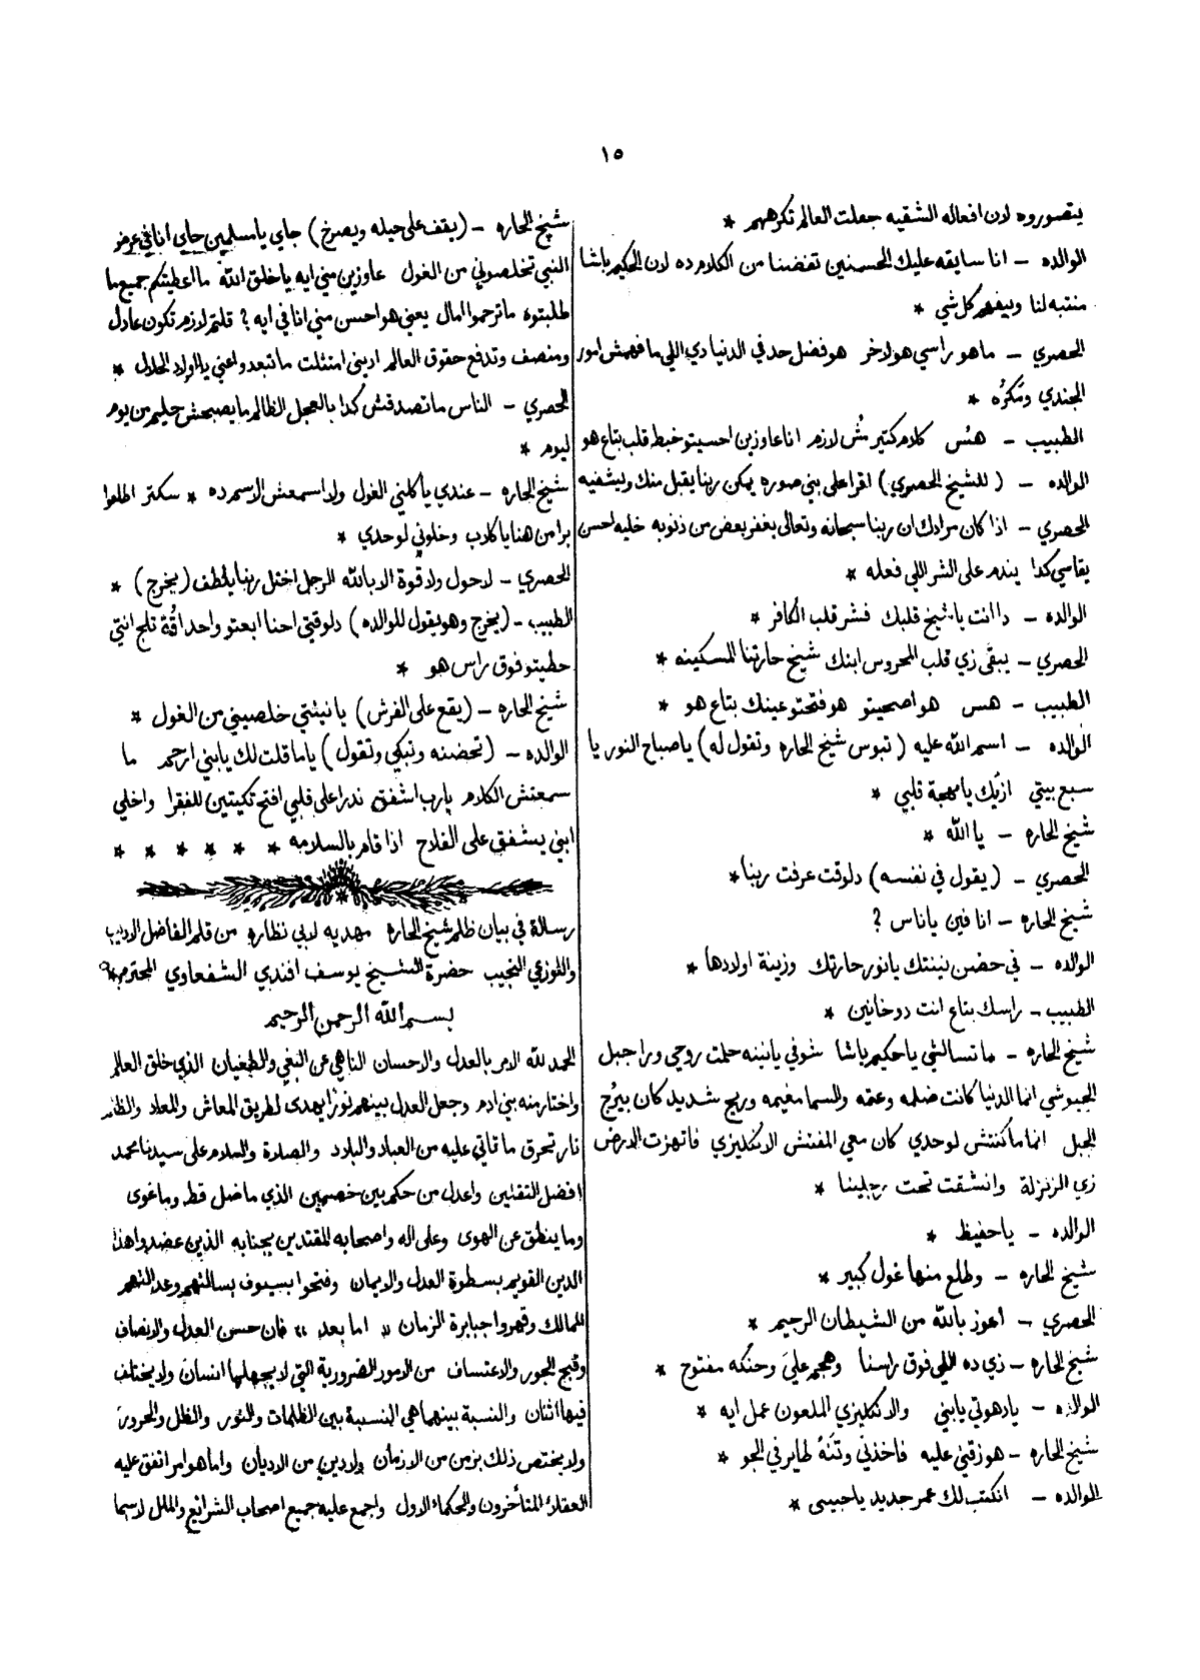 ١٥
يتصوروه لان افعاله الشقيه جعلت العالم تكرههم *
الوالده – انا سايقه عليك الحسنين تفضنا من الكلام ده لان الحكيم باشا
منتبه لنا وبيفهم كل شي *
الحصري – ما هو راسي هو لاخر هو فضل حد في الدنيا دي اللي ما فهمش امور
الجندي ومَكرُه *
الطبيب – هسّ كلام كتير مُش لازم انا عاوزين احسيتو خبط قلب بتاع هو
الوالده – (للشيخ الحصري) اقرا على بني صوره يمكن ربنا يقبل منك ويشفيه
الحصري – اذا كان مرادك ان ربنا سبحانه وتعالى يغفر بعض من ذنوبه خليه احسن
يقاسي كدا يندم على الشر اللي فعله *
الوالده – دا انت يا شيخ قلبك فشر قلب الكافر *
الحصري – يبقى زي قلب المحروس ابنك شيخ حارتنا المسكينه *
الطبيب – هس هو اصحيتو هو فتحتو عينك بتاع هو *
الوالده – اسم الله عليه (تبوس شيخ الحاره وتقول له) يا صباح النور يا
سبع بيتي ازيّك يا مهجة قلبي *
شيخ الحاره – يا الله *
الحصري – (يقول في نفسه) دلوقت عرفت ربنا *
شيخ الحاره – انا فين يا ناس ؟
الوالده – في حضن نينتك يا نور حارتك وزينة اولادها *
الطبيب – راسك بتاع انت دوخانين *
شيخ الحاره – ما تسالشي يا حكيم باشا شوفي يا نينه حلمت روحي ورا جبل
الجيوشي انما الدنيا كانت ضلمه وعتمه والسما مغيمه وريح شديد كان بيرُج
الجبل انما ما كنتش لوحدي كان معي المفتش الانكليزي فاتهزت الارض
زي الزلزلة وانشقت تحت رجلينا *
الوالده – يا حفيظ *
شيخ الحاره – وطلع منها غول كبير *
الحصري – اعوز بالله من الشيطان الرجيم *
شيخ الحاره – زي ده اللي فوق راسنا وهجم عليَ وحنَكه مفتوح *
الوالده – يا دهوتي يا بني والانكليزي الملعون عمل ايه *
شيخ الحاره – هو زقني عليه فاخذني وتَنَهُ طاير في الجو *
الوالده – انكتب لك عمر جديد يا حبيبي *
شيخ الحاره – (يقف على حيله ويصرخ) جاي يا مسلمين جاي انا في عرض
النبي تخلصوني من الغول عاوزين مني ايه يا خلق الله ما اعطيتكم جميع ما
طلبتوه ما ترحموا امال يعني هو احسن مني انا في ايه ؟ قلتم لازم تكون عادل
ومنصف وتدفع حقوق العالم اديني امتثلت ما تبعدوا عني يا اولاد الحلال *
الحصري – الناس ما تصدقش كدا بالعجل الظالم ما يصبحش حليم من يوم
ليوم *
شيخ الحاره – عندي ياكلني الغول ولا اسمعش الاسم ده * سكتر اطلعوا
برا من هنا يا كلاب وخلوني لوحدي *
الحصري – لاحول ولا قوة الا بالله الرجل اختل ربنا يلطف (يخرج) *
الطبيب – (يخرج وهو يقول للوالده) دلوقتي احنا ابعتو واحد اقّة تلج انتي
حطيتو فوق راس هو *
شيخ الحاره – (يقع على الفرش) يا نينتي خلصيني من الغول *
الوالده – (تحضنه وتبكي وتقول) ياما قلت لك يا بني ارحم ما
سمعتش الكلام يارب اشفق ندرا على قلبي افتح تكيتين للفقرا واخلي
ابني يشفق على الفلاح اذا قام بالسلامه * * * * * *
رسالة في بيان ظلم شيخ الحاره مهديه لابي نظاره من قلم الفاضل الاديب
واللوزعي النجيب حضرة الشيخ يوسف افندي الشفعاوي المحترم *
بسم الله الرحمن الرحيم
الحمد لله الامر بالعدل والاحسان الناهي عن البغي والطغيان الذي خلق العالم
واختار منه بني ادم وجعل العدل بينهم نورًا يهدى لطريق المعاش والمعاد والظلم
نار تحرق ما تاتي عليه من العباد والبلاد والصلاة والسلام على سيدنا محمد
افضل الثقلين واعدل من حكم بين خصمين الذي ما ضل قط وما غوى
وما ينطق عن الهوى وعلى اله واصحابه المقتدين بجنابه الذين عضدوا هذا
الدين القويم بسطوة العدل والايمان وفتحوا بسيوف بسالتهم وعدالتهم
الممالك وقهروا جبابرة الزمان « اما بعد » فان حسن العدل والانصاف
وقبح الجور والاعتساف من الامور الضرورية التي لا يجهلها انسان ولا يختلف
فيها اثنان والنسبة بينهما هي النسبة بين الظلمات والنور والظل والحرور
ولا يختص ذلك بزمن من الازمان ولا دين من الاديان وانما هو امر اتفق عليه
العقلاء المتأخرون والحكماء الاول واجمع عليه جميع اصحاب الشرائع والملل لاسيما